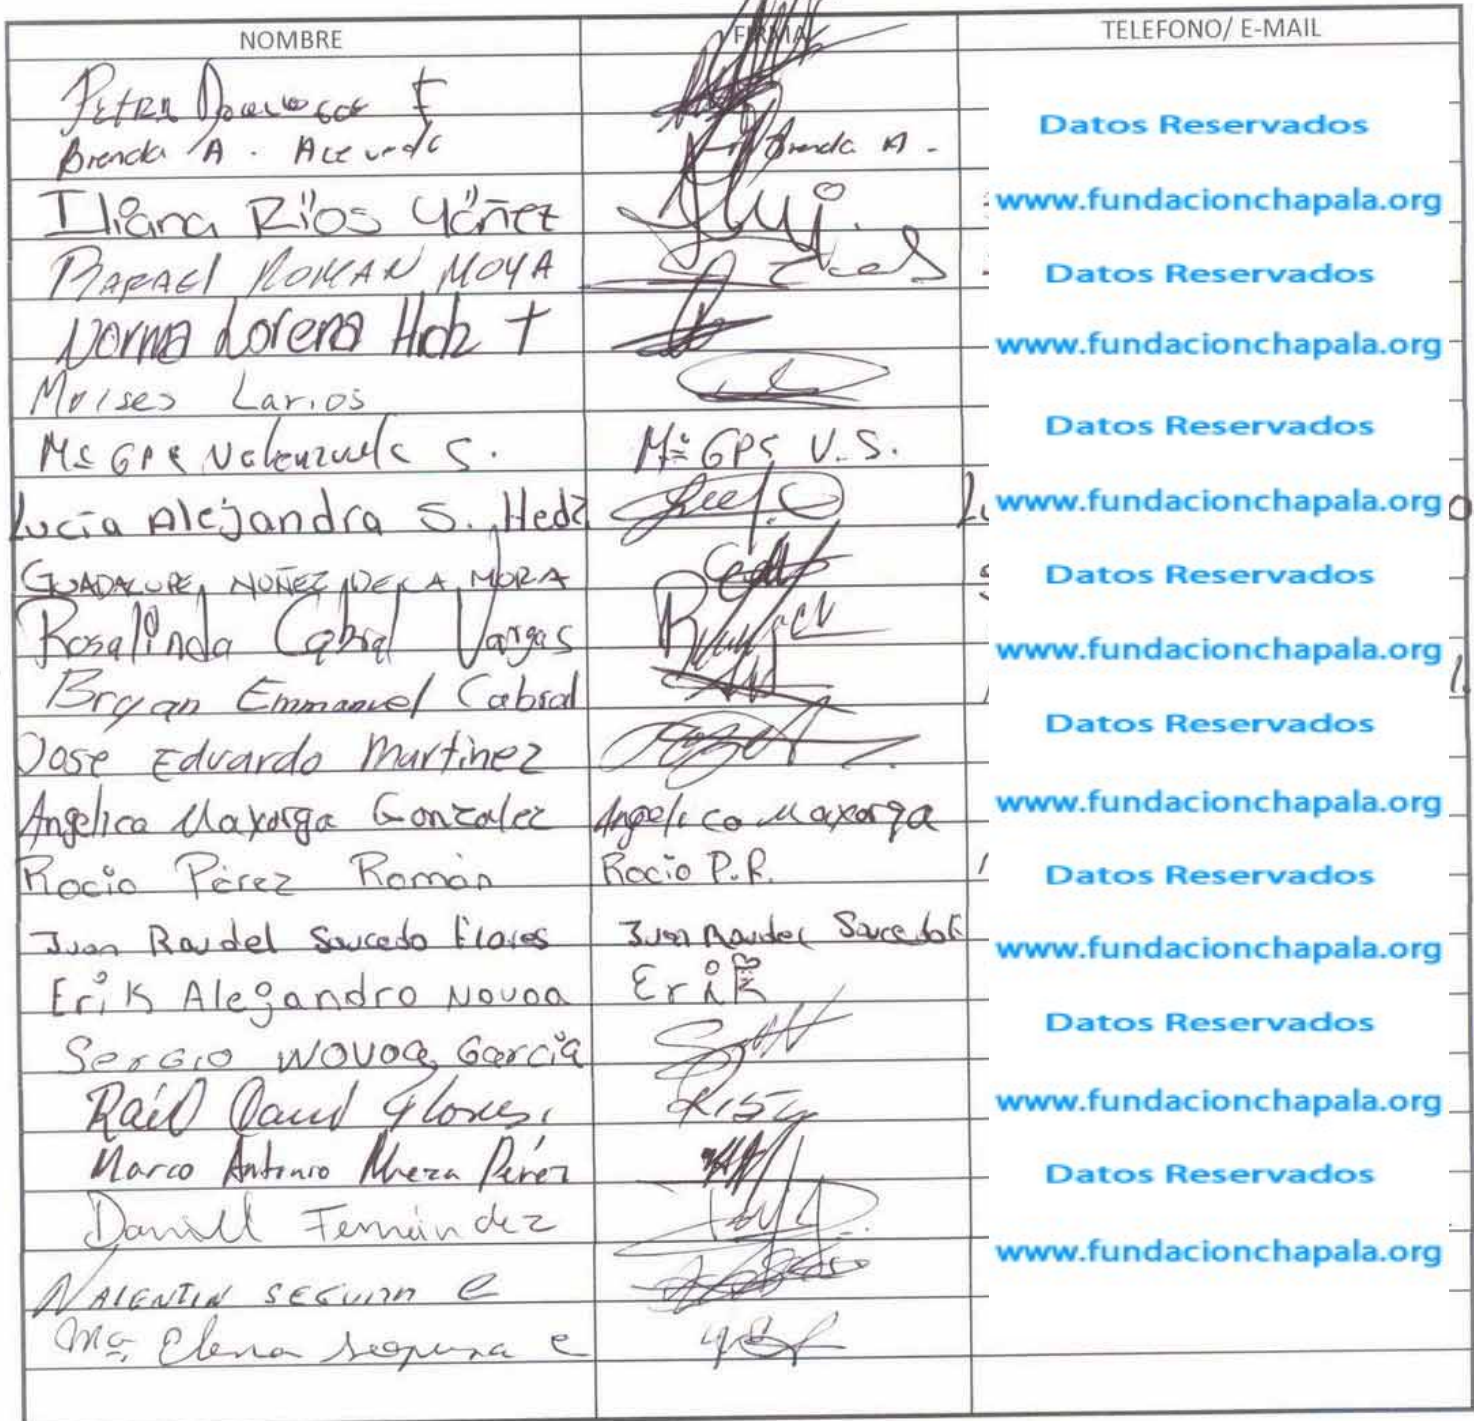 NOMBRE FIRMA TELEFONO/ E-MAIL
Petra F
Brenda A. Acevedo Brenda A. Datos Reservados
Iliana Ríos Yáñez www.fundacionchapala.org
Rafael Roman Moya Datos Reservados
Norma Lorena Hdz T www.fundacionchapala.org
Moises Larios
Mª GPE Valenzuela S. Mª GPE V.S. Datos Reservados
Lucía Alejandra S. Hedz www.fundacionchapala.org
GUADALUPE NUÑEZ DE LA MORA Datos Reservados
Rosalinda Cabral Vargas www.fundacionchapala.org
Bryan Emmanuel Cabral
Jose Eduardo Martinez Datos Reservados
Angelica Mayorga Gonzalez Angelica Mayorga www.fundacionchapala.org
Rocio Pérez Román Rocio P.R. Datos Reservados
Juan Raudel Saucedo Flores Juan Raudel Saucedo F www.fundacionchapala.org
Erik Alejandro Novoa Erik
Sergio Novoa García Datos Reservados
Raúl David Flores. www.fundacionchapala.org
Marco Antonio Meza Pérez Datos Reservados
Daniel Fernández
VALENTIN SEGURA E www.fundacionchapala.org
Ma. Elena Segura E